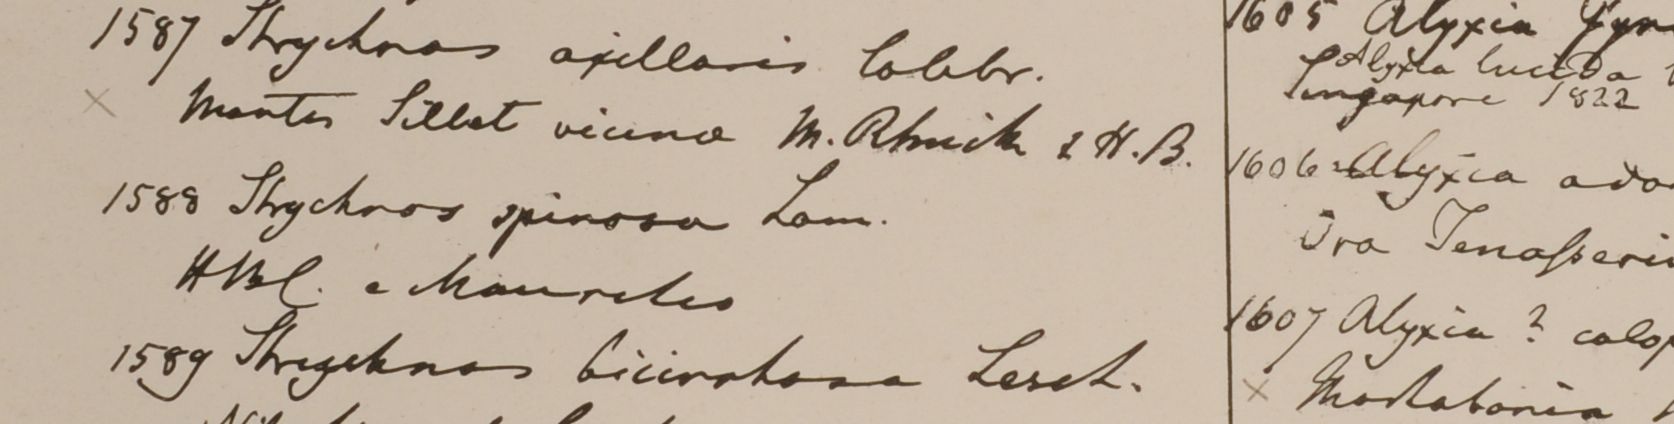 1587 Strychnos axillaris Colebr.
Montes Sillet vicina M.R. Smith & H.B.
1588 Strychnos spinosa Lam.
HBC. e Mauritio
1589 Strychnos bicirrhosa Lesch.
1605 Alyxia Gyn
Alyxia lucida
Singapore 1822
1606 Alyxia ado
Ora Tenasseri
1607 Alyxia ? calop
Martabania